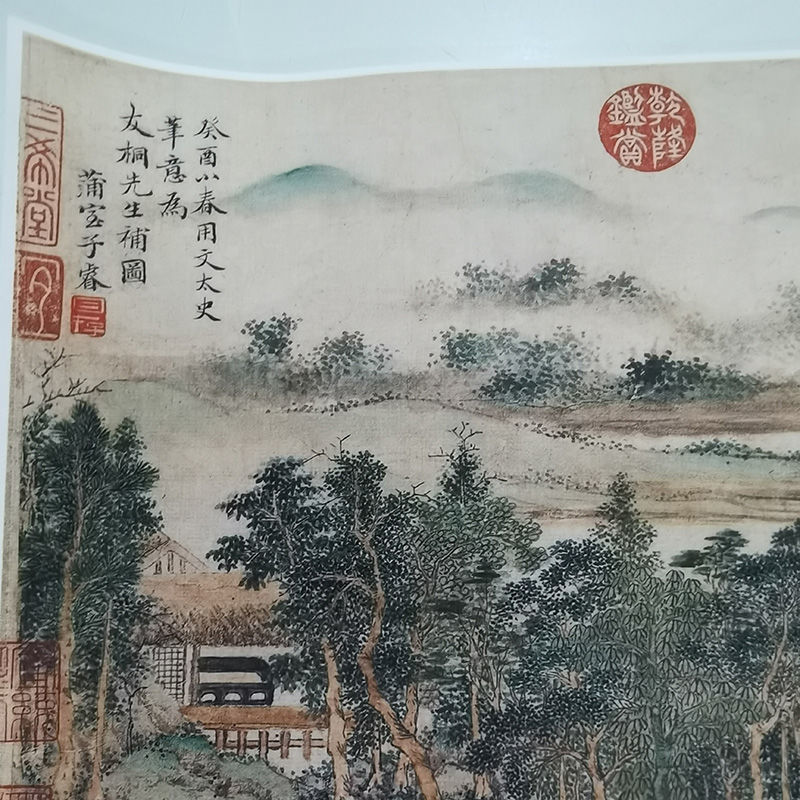 癸酉小春用文太史
筆意為
友桐先生補圖
蒲室子睿
乾隆
鑑賞
三希堂